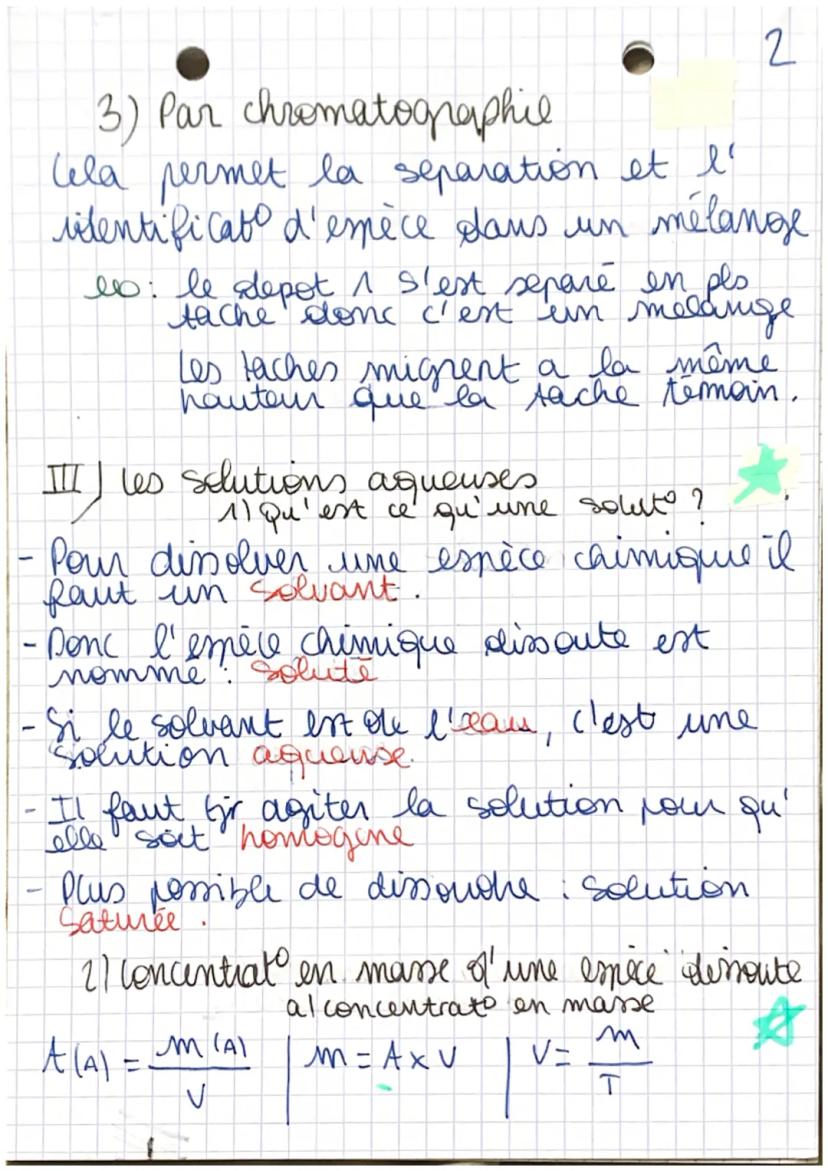 2
3) Par chromatographie
Cela permet la separation et l'
identificat° d'espèce dans un mélange
ex: le depot 1 s'est separé en pls
tache donc c'est un melange
Les taches migrent a la même
hauteur que la tache témoin.
III) Les solutions aqueuses
1) Qu'est ce qu'une solut° ?
- Pour dissolver une espèce chimique il
faut un solvant.
- Donc l'espèce chimique dissoute est
nommé : Soluté
- Si le solvant est de l'eau, c'est une
solution aqueuse.
- Il faut tjr agiter la solution pour qu'
elle soit homogène
- Plus possible de dissoudre : solution
Saturée.
2) Concentrat° en masse d'une espèce dissoute
a) concentrat° en masse
t(A) = m(A) / V | m = A x V | V = m / T